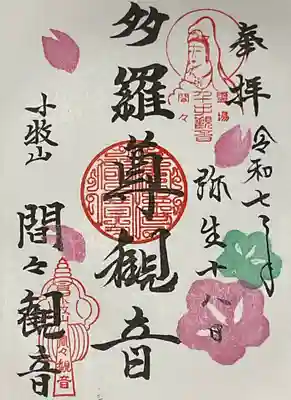 奉拝
令和七年
弥生十八日
多羅尊観音
小牧山
間々観音
霊場
間々
小牧山
間々観音